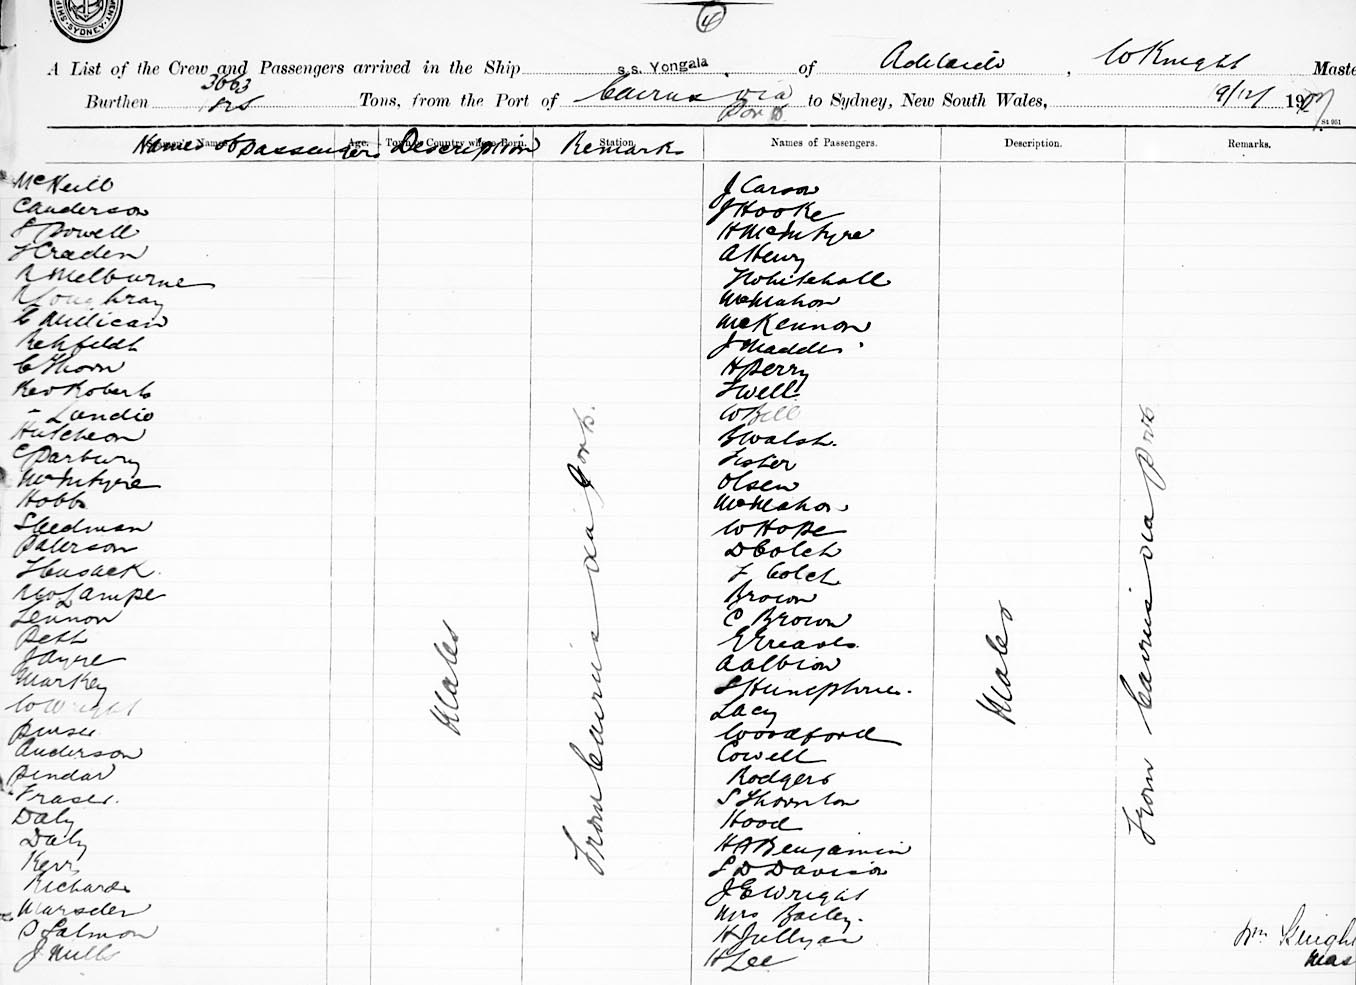 SYDNEY
4
A List of the Crew and Passengers arrived in the Ship s.s. Yongala of Adelaide, W Knight Maste
Burthen 3663 Tons, from the Port of Cairns via Ports to Sydney, New South Wales, 9/12/ 19
Names of passengers Description Remarks Names of Passengers. Description. Remarks.
Age. Town or Country where Born. Station
McNeill
C Anderson
Powell
Craden
R Melbourne
C Millican
Rehfeldt
C Thorn
Rev Roberts
- Lundie
Hutcheon
C Parbury
McIntyre
Hobbs
Steedman
Paterson
Cusack
Lampe
Lennon
Peth
Markey
W Wright
Anderson
Pendar
Fraser.
Daly
Daly
Kerr
Richards
Marsden
D Salmon
J Mills
Males
From Cairns via Ports.
J Carson
J Hooke
H McIntyre
A Henry
Whitehall
McMahon
McKennon
J Maddis
H Perry
F Well
W Bell
B Walsh.
Fister
Olsen
McMahon
W Hope
D Colch
F Colch
Brown
C Brown
E Greaves
A Albion
S Humphries.
Lacy
Woodford
Cowell
Rodgers
S Thornton
Hood
H A Benjamin
S D Davison
J E Wright
Mrs Bailey.
H Jullyan
H Lee
Males
From Cairns via Ports
Wm Knigh
Mas